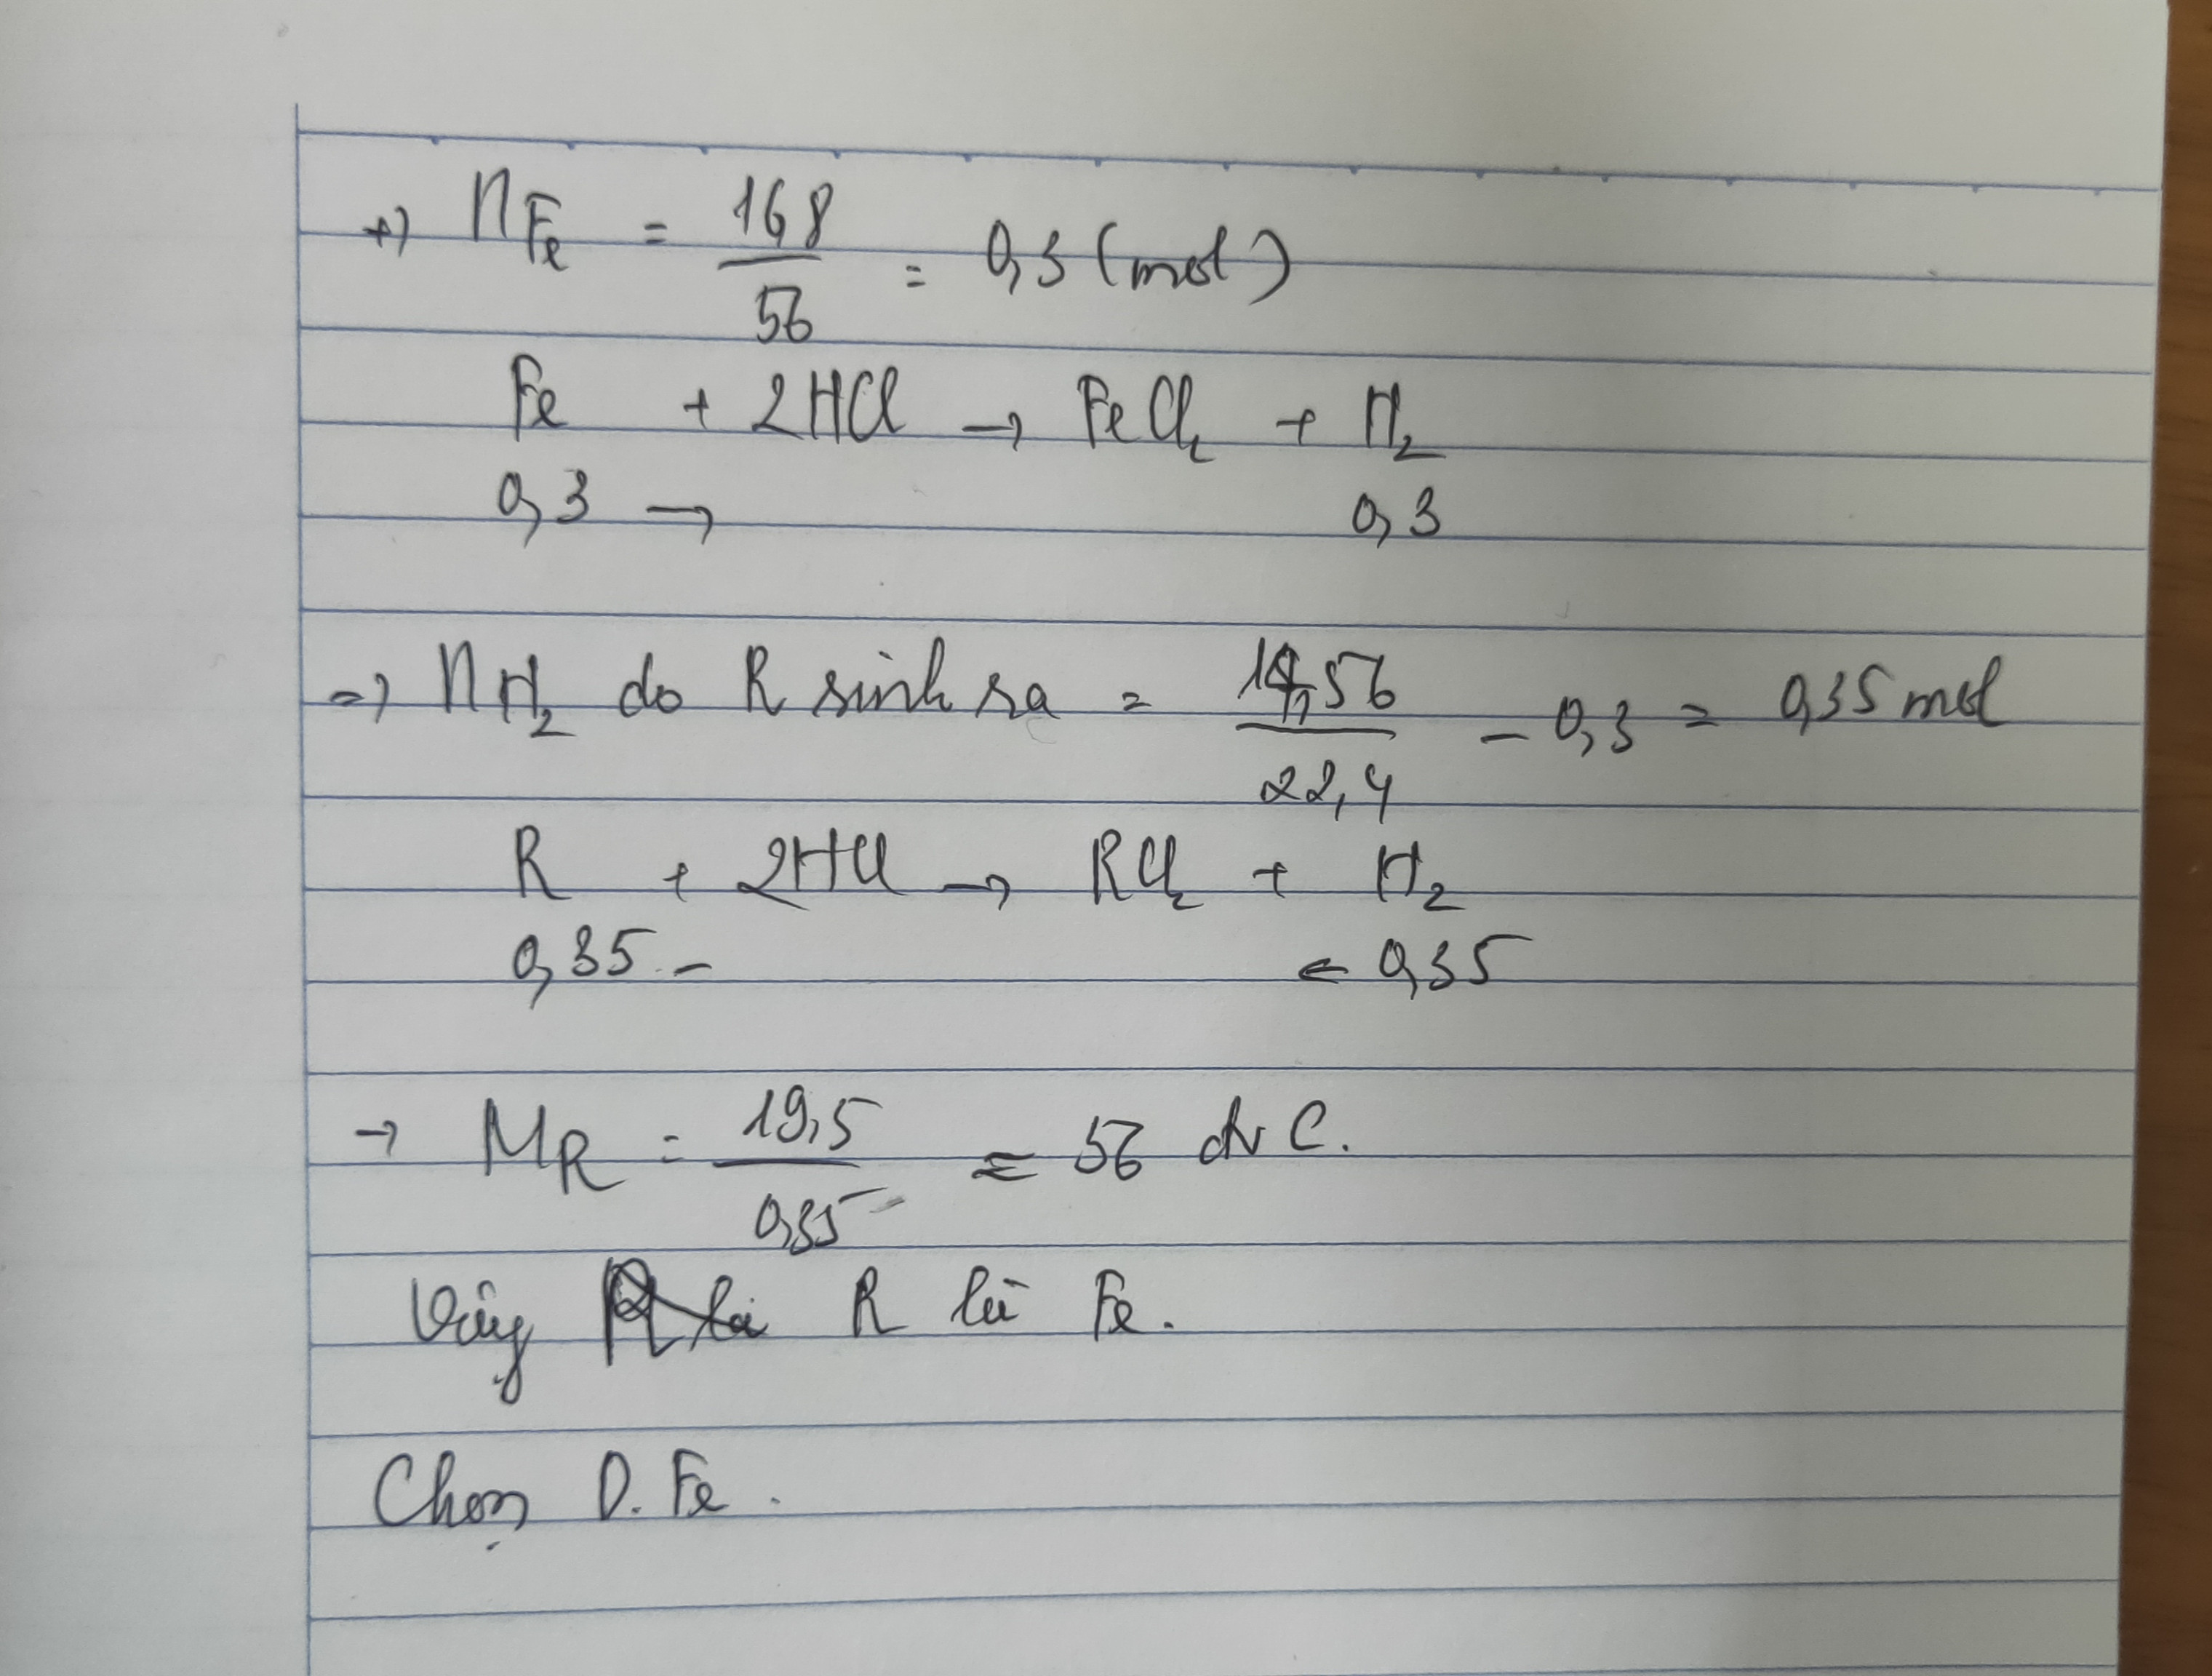 +) nFe = 16,8/56 = 0,3 (mol)
Fe + 2HCl → FeCl2 + H2
0,3 → 0,3
=) nH2 do R sinh ra = 14,56/22,4 - 0,3 = 0,35 mol
R + 2HCl → RCl2 + H2
0,35 - ← 0,35
→ MR = 19,5/0,35 = 56 đvC.
Vậy R là Fe.
Chọn D. Fe.